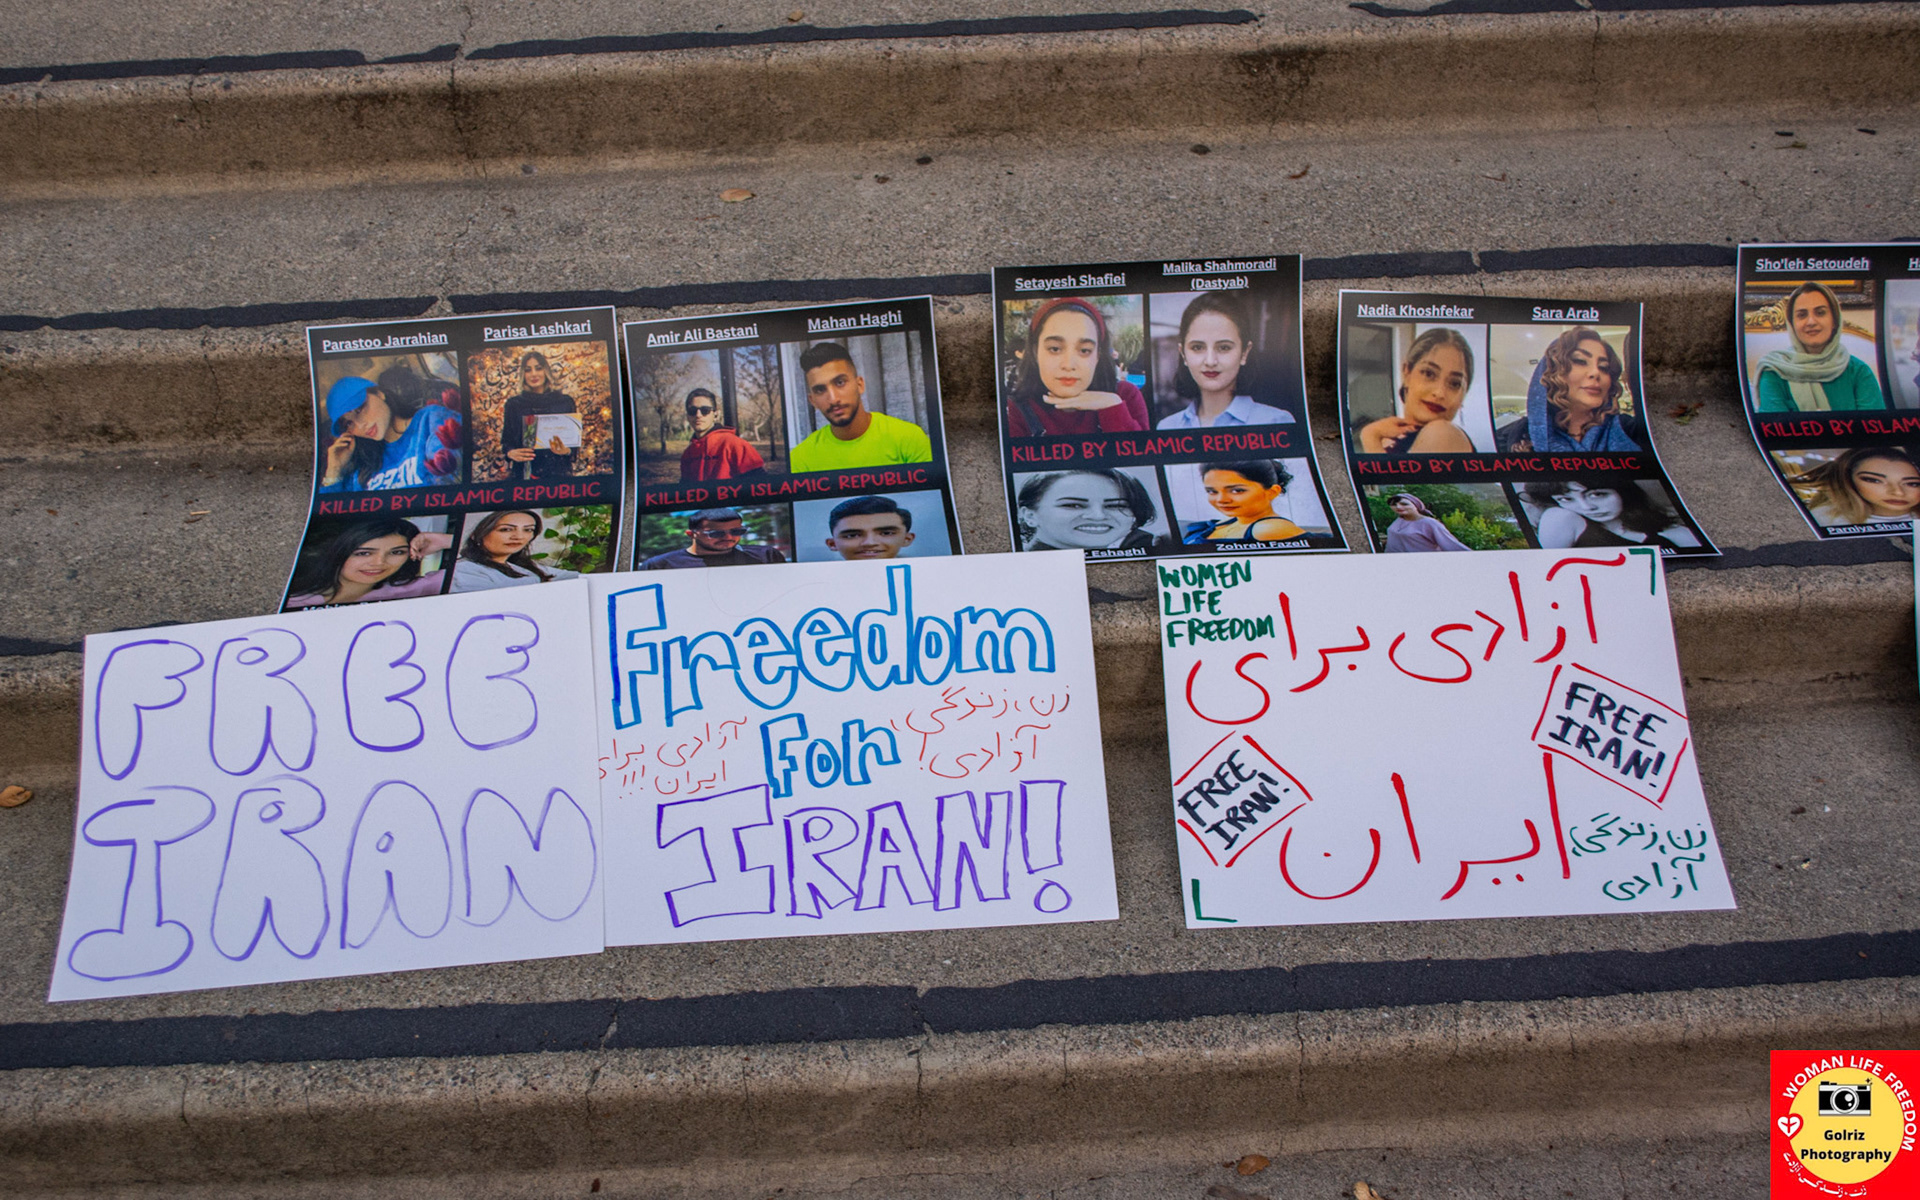 Parastoo Jarrahian
Parisa Lashkari
KILLED BY ISLAMIC REPUBLIC
Amir Ali Bastani
Mahan Haghi
KILLED BY ISLAMIC REPUBLIC
Setayesh Shafiei
Malika Shahmoradi
(Dastyab)
KILLED BY ISLAMIC REPUBLIC
Eshaghi
Zohreh Fazeli
Nadia Khoshfekar
Sara Arab
KILLED BY ISLAMIC REPUBLIC
Sho'leh Setoudeh
KILLED BY ISLAM
Parniya Shad
FREE
IRAN
Freedom
For
IRAN!
آزادی برای
ایران!!!
زن، زندگی،
آزادی!
WOMEN
LIFE
FREEDOM
آزادی برای
ایران
FREE
IRAN!
FREE
IRAN!
زن، زندگی،
آزادی
WOMAN LIFE FREEDOM
Golriz
Photography
زن، زندگی، آزادی